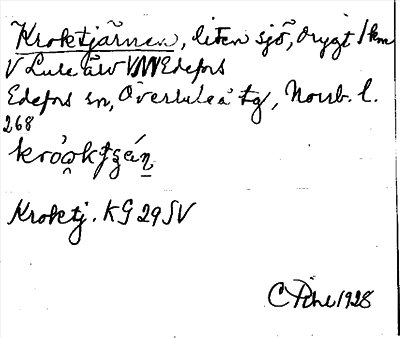 Kroktjärnen, liten sjö, drygt 1 km
V Lule älv VNV Edefors
Edefors sn, Överluleå tg, Norrb. l.
268
Kroktj. KG 29 SV
C Pihl 1928